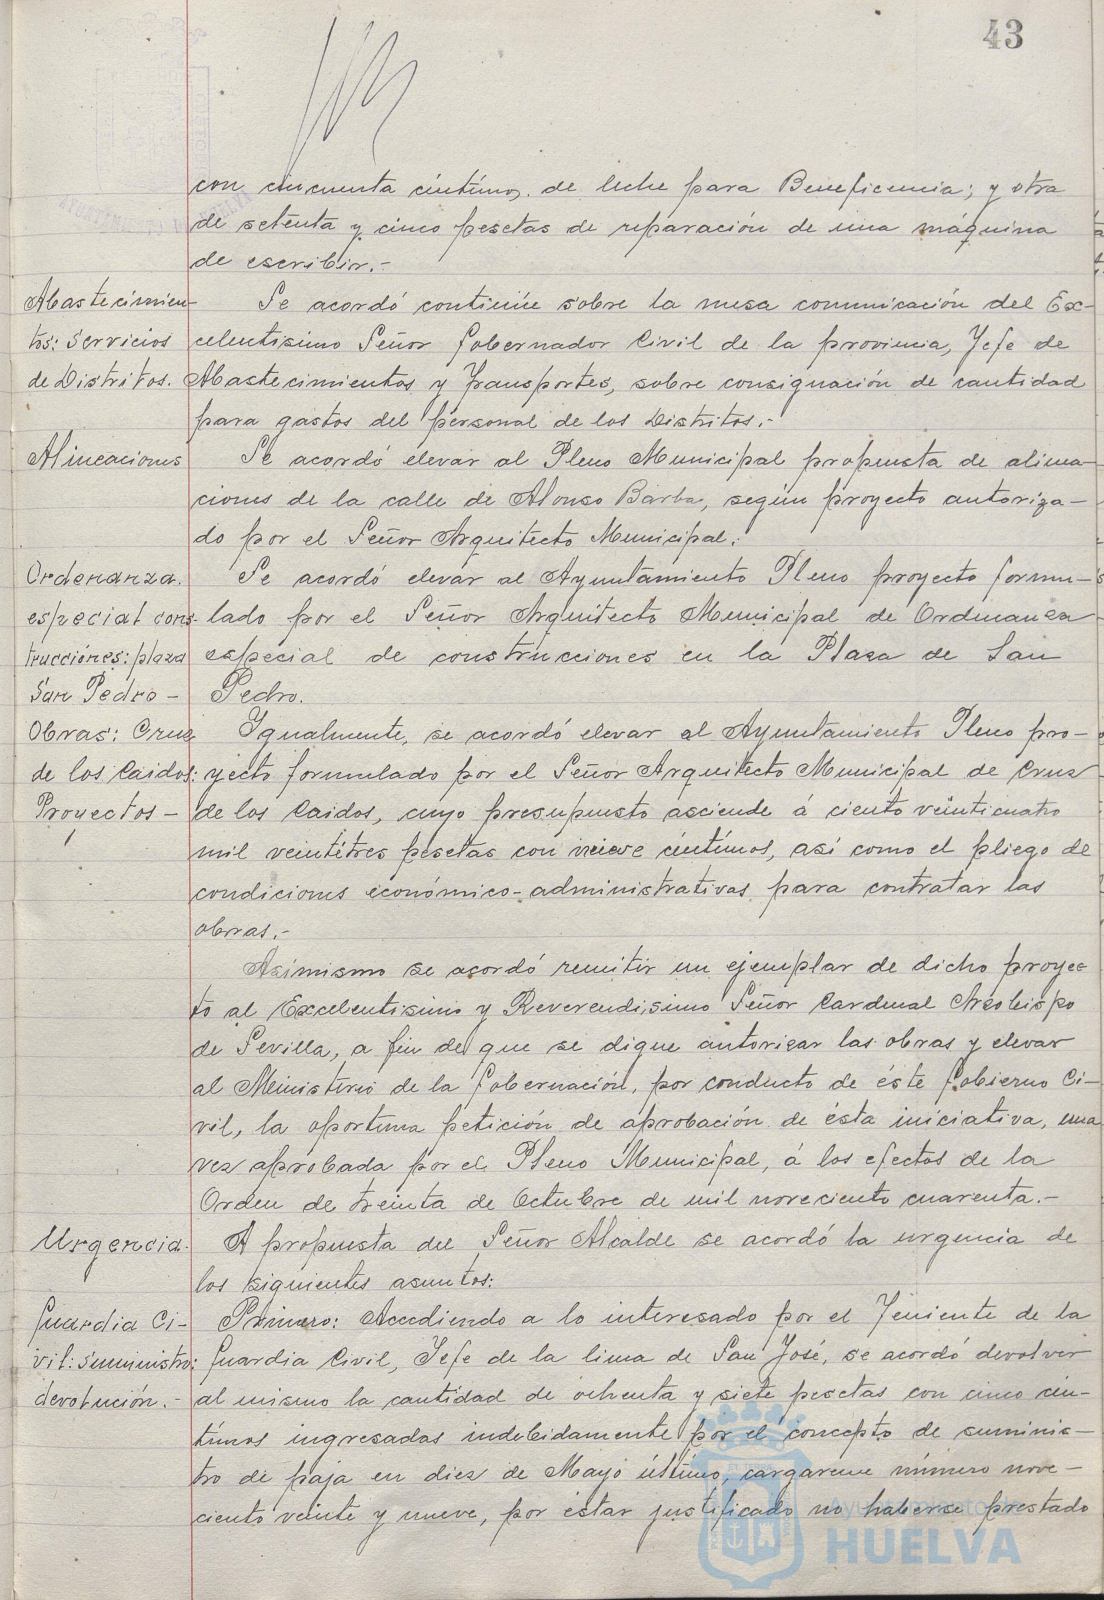 43
con cincuenta céntimos, de leche para Beneficencia; y otra
de setenta y cinco pesetas de reparación de una máquina
de escribir.-
Abastecimien-
tos: Servicios
de Distritos.
Se acordó continúe sobre la mesa comunicación del Ex-
celentisimo Señor Gobernador Civil de la provincia, Jefe de
Abastecimientos y Transportes, sobre consignación de cantidad
para gastos del personal de los Distritos.-
Alineaciones
Se acordó elevar al Pleno Municipal propuesta de alinea-
ciones de la calle de Alonso Barba, según proyecto autoriza-
do por el Señor Arquitecto Municipal.
Ordenanza
especial cons-
trucciónes: plaza
San Pedro -
Se acordó elevar al Ayuntamiento Pleno proyecto formu-
lado por el Señor Arquitecto Municipal de Ordenanza
especial de construcciones en la Plaza de San
Pedro.
Obras: Cruz
de los Caidos:
Proyectos -
Igualmente, se acordó elevar al Ayuntamiento Pleno pro-
yecto formulado por el Señor Arquitecto Municipal de Cruz
de los Caidos, cuyo presupuesto asciende á ciento veinticuatro
mil veintitres pesetas con nueve céntimos, así como el pliego de
condiciones económico-administrativas para contratar las
obras.-
Asimismo se acordó remitir un ejemplar de dicho proyec-
to al Excelentisimo y Reverendisimo Señor Cardenal Arzobispo
de Sevilla, a fin de que se digne autorizar las obras y elevar
al Ministerio de la Gobernación, por conducto de éste Gobierno Ci-
vil, la oportuna petición de aprobación de ésta iniciativa, una
vez aprobada por el Pleno Municipal, á los efectos de la
Orden de treinta de Octubre de mil noveciento cuarenta.-
Urgencia.
A propuesta del Señor Alcalde se acordó la urgencia de
los siguientes asuntos:
Guardia Ci-
vil: Suministro:
devolución.-
Primero: Accediendo a lo interesado por el Teniente de la
Guardia Civil, Jefe de la linea de San José, se acordó devolver
al mismo la cantidad de ochenta y siete pesetas con cinco cén-
timos ingresadas indebidamente por el concepto de suminis-
tro de paja en diez de Mayo último, cargareme número nove-
ciento veinte y nueve, por estar justificado no haberse prestado
Ayuntamiento
HUELVA